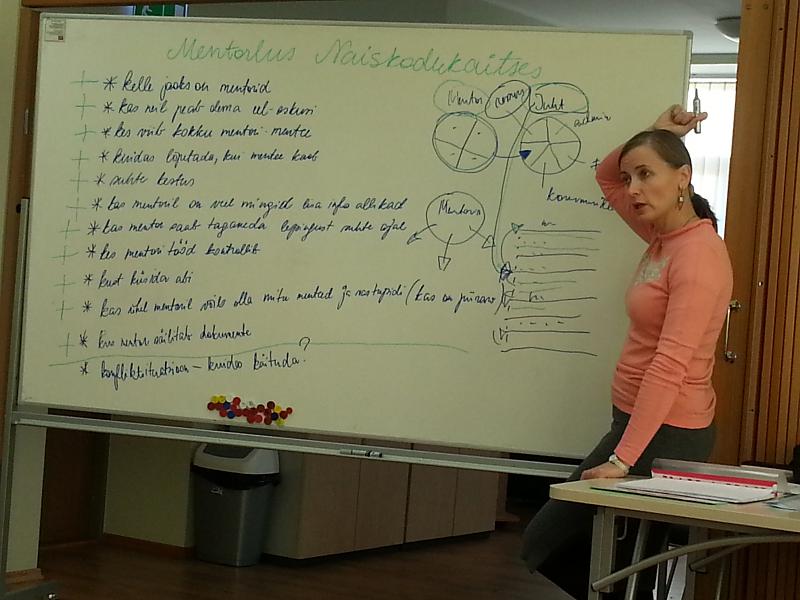 Mentorlus Naiskodukaitses
* kelle jaoks on mentorid
* kas neil peab olema eel-oskusi
* kes viib kokku mentori-mentee
* kuidas lõpetada, kui mentee kaob
* suhte kestus
* kas mentoril on veel mingeid lisa info allikad
* kas mentor saab taganeda lepingust suhte ajal
* kes mentori tööd kontrollib
* kust küsida abi
* kas ühel mentoril võib olla mitu menteed ja vastupidi (kas on piirang)
* kus mentor säilitab dokumente
* konfliktsituatsioon – kuidas käituda?
Mentor
Juht
Mentorit